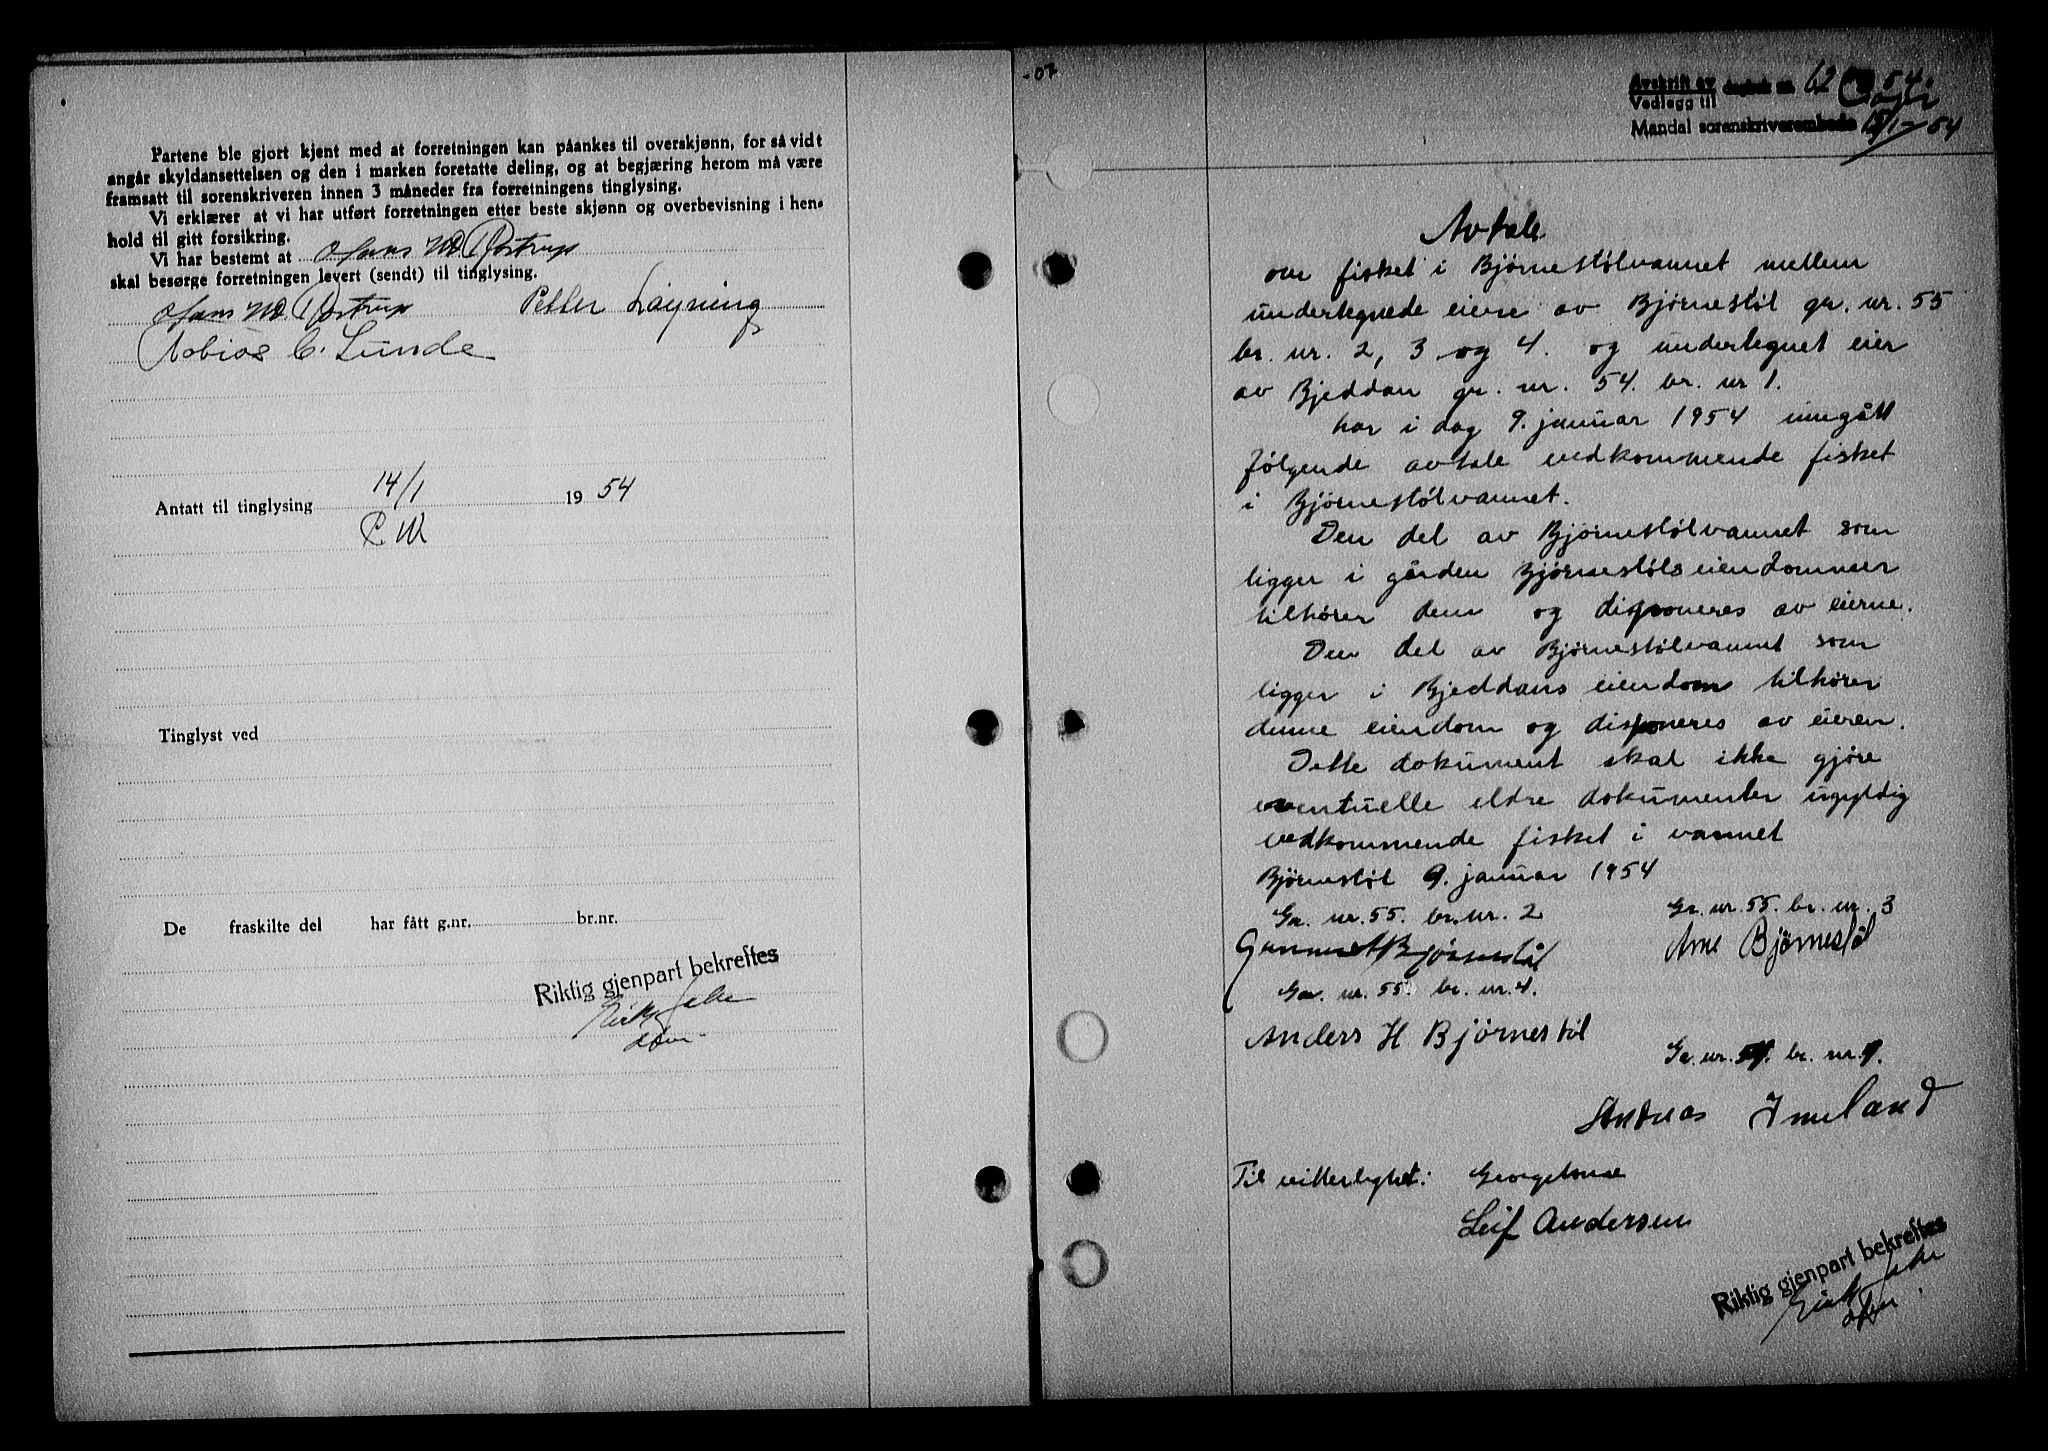 Partene ble gjort kjent med at forretningen kan påankes til overskjønn, for så vidt
angår skyldansettelsen og den i marken foretatte deling, og at begjæring herom må være
framsatt til sorenskriveren innen 3 måneder fra forretningens tinglysing.
Vi erklærer at vi har utført forretningen etter beste skjønn og overbevisning i hen-
hold til gitt forsikring.
Vi har bestemt at Hans Rostrup
skal besørge forretningen levert (sendt) til tinglysing.
Hans Rostrup Petter Løyning
Tobias C. Lunde
Antatt til tinglysing 14/1 19 54
Tinglyst ved
De fraskilte del har fått g.nr. br.nr.
Riktig gjenpart bekreftes
-07
Avskrift av dagbok nr. 62 54.
Vedlegg til
Mandal sorenskriverembede 15/1-54
Avtale
over fisket i Bjørnestølvannet mellem
undertegnede eiere av Bjørnestøl gr. nr. 55
br. nr. 2, 3 og 4. og undertegnet eier
av Bjeddan gr. nr. 54. br. nr 1.
har i dag 9. januar 1954 inngått
følgende avtale vedkommende fisket
i Bjørnestølvannet.
Den del av Bjørnestølvannet som
ligger i gården Bjørnestøls eiendommer
tilhører dem og disponeres av eierne.
Den del av Bjørnestølvannet som
ligger i Bjeddans eiendom tilhører
denne eiendom og disponeres av eieren.
Dette dokument skal ikke gjøre
eventuelle eldre dokumenter ugyldig
vedkommende fisket i vannet
Bjørnestøl 9. januar 1954
Gr. nr. 55. br. nr. 2 Gr. nr. 55. br. nr. 3
Gunnar Bjørnestøl Arne Bjørnestøl
Gr. nr. 55. br. nr. 4.
Anders H Bjørnestøl
Gr. nr. 54. br. nr. 1.
Andreas Imeland
Til vitterlighet:
Leif Andersen
Riktig gjenpart bekreftes